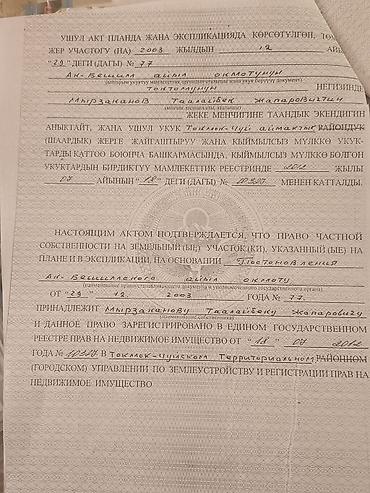 УШУЛ АКТ ПЛАНДА ЖАНА ЭКСПЛИКАЦИЯДА КӨРСӨТҮЛГӨН,
ЖЕР УЧАСТОГУ (НА) 2003 ЖЫЛДЫН 12
"29" ДЕГИ (ДАГЫ) № 77
Ак-Бешим айыл окмотунун
токтомунун НЕГИЗИНДЕ
Мырзаканов Таалайбек Жапаровичтин
ЖЕКЕ МЕНЧИГИНЕ ТААНДЫК ЭКЕНДИГИН
АНЫКТАЙТ, ЖАНА УШУЛ УКУК Токмок-Чуй аймактык РАЙОНДУК
(ШААРДЫК) ЖЕРГЕ ЖАЙГАШТЫРУУ ЖАНА КЫЙМЫЛСЫЗ МҮЛККӨ УКУК-
ТАРДЫ КАТТОО БОЮНЧА БАШКАРМАСЫНДА, КЫЙМЫЛСЫЗ МҮЛККӨ БОЛГОН
УКУКТАРДЫН БИРДИКТҮҮ МАМЛЕКЕТТИК РЕЕСТРИНДЕ 2012 ЖЫЛЫ
07 АЙЫНЫН "18" ДЕГИ (ДАГЫ) № МЕНЕН КАТТАЛДЫ.
НАСТОЯЩИМ АКТОМ ПОДТВЕРЖДАЕТСЯ, ЧТО ПРАВО ЧАСТНОЙ
СОБСТВЕННОСТИ НА ЗЕМЕЛЬНЫЙ (ЫЕ) УЧАСТОК (КИ), УКАЗАННЫЙ (ЫЕ) НА
ПЛАНЕ И В ЭКСПЛИКАЦИИ, НА ОСНОВАНИИ Постоновления
Ак-Бешимского айыл окмоту
ОТ "29" 12 2003 ГОДА № 77
ПРИНАДЛЕЖИТ Мырзаканову Таалайбеку Жапаровичу
И ДАННОЕ ПРАВО ЗАРЕГИСТРИРОВАНО В ЕДИНОМ ГОСУДАРСТВЕННОМ
РЕЕСТРЕ ПРАВ НА НЕДВИЖИМОЕ ИМУЩЕСТВО ОТ "18" 07 2012
ГОДА № В Токмок-Чуйском Территориальном РАЙОННОМ
(ГОРОДСКОМ) УПРАВЛЕНИИ ПО ЗЕМЛЕУСТРОЙСТВУ И РЕГИСТРАЦИИ ПРАВ НА
НЕДВИЖИМОЕ ИМУЩЕСТВО